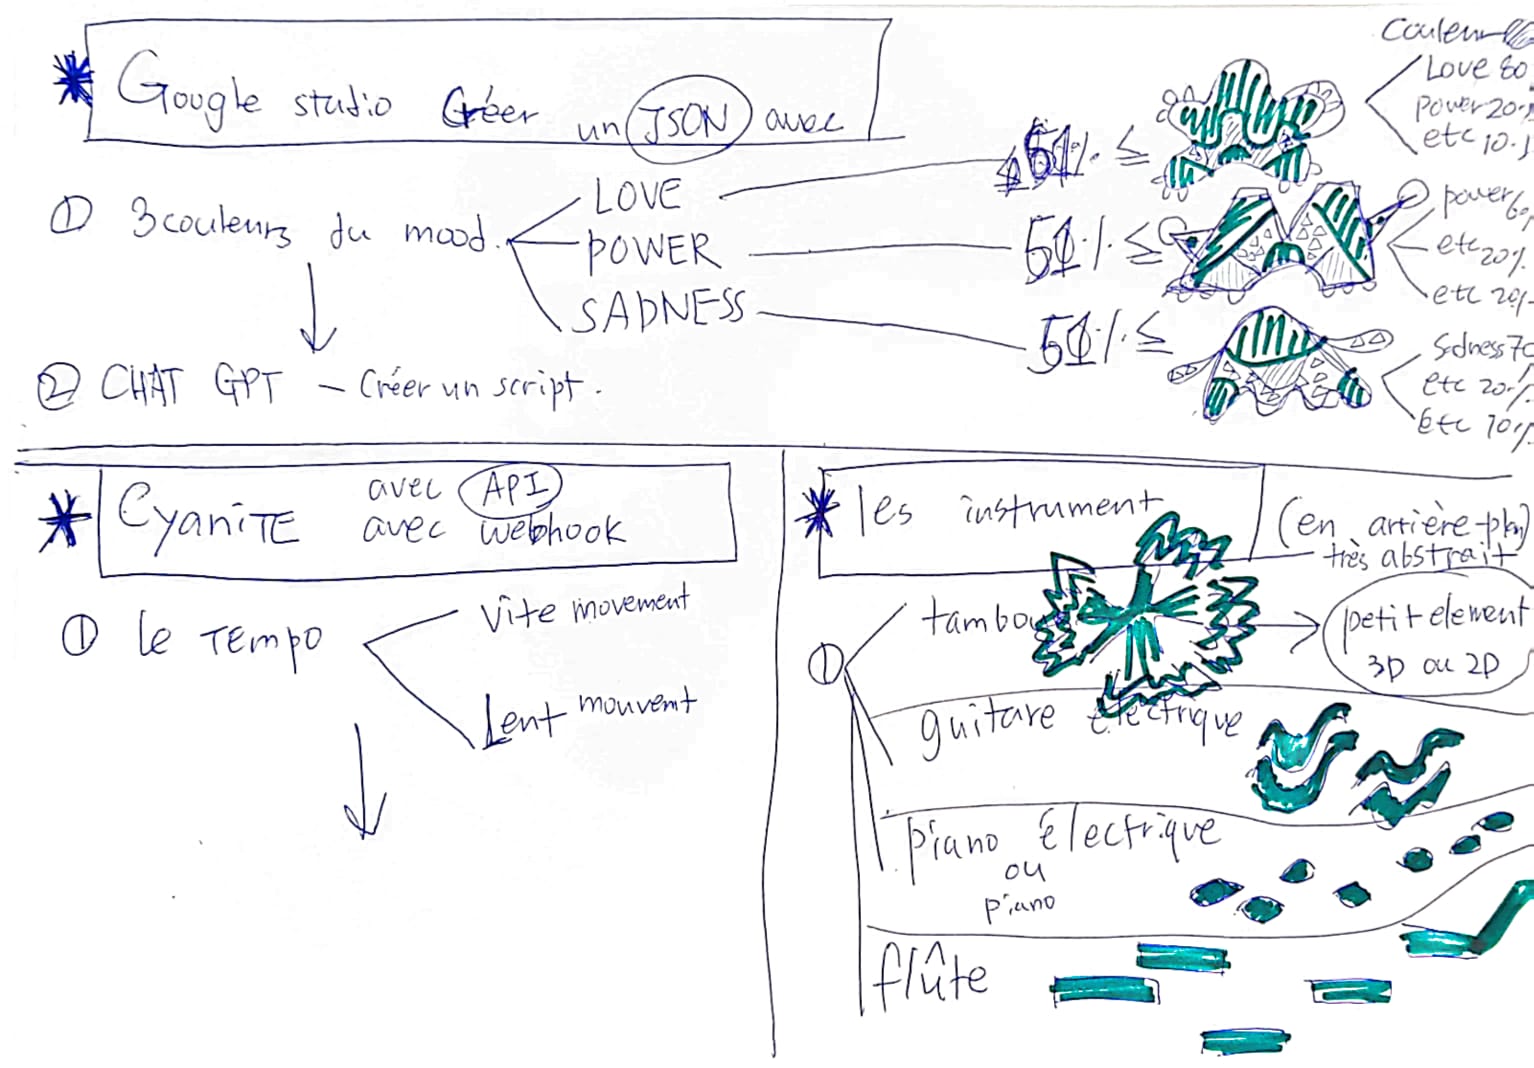 Google studio Créer un JSON avec
① 3 couleurs du mood.
LOVE
POWER
SADNESS
51% ≤
51% ≤
51% ≤
Couleur
Love 80
power 20%
etc 10%
power 60%
etc 20%
etc 20%
Sadness 70
etc 20%
etc 10%
② CHAT GPT - Créer un script.
CyaniTE avec API
avec webhook
① le TEMPO
vite movement
Lent mouvemt
les instrument
(en arrière-plan)
très abstrait
①
tambou
petit element
3D ou 2D
guitare électrique
piano électrique
ou
piano
flûte